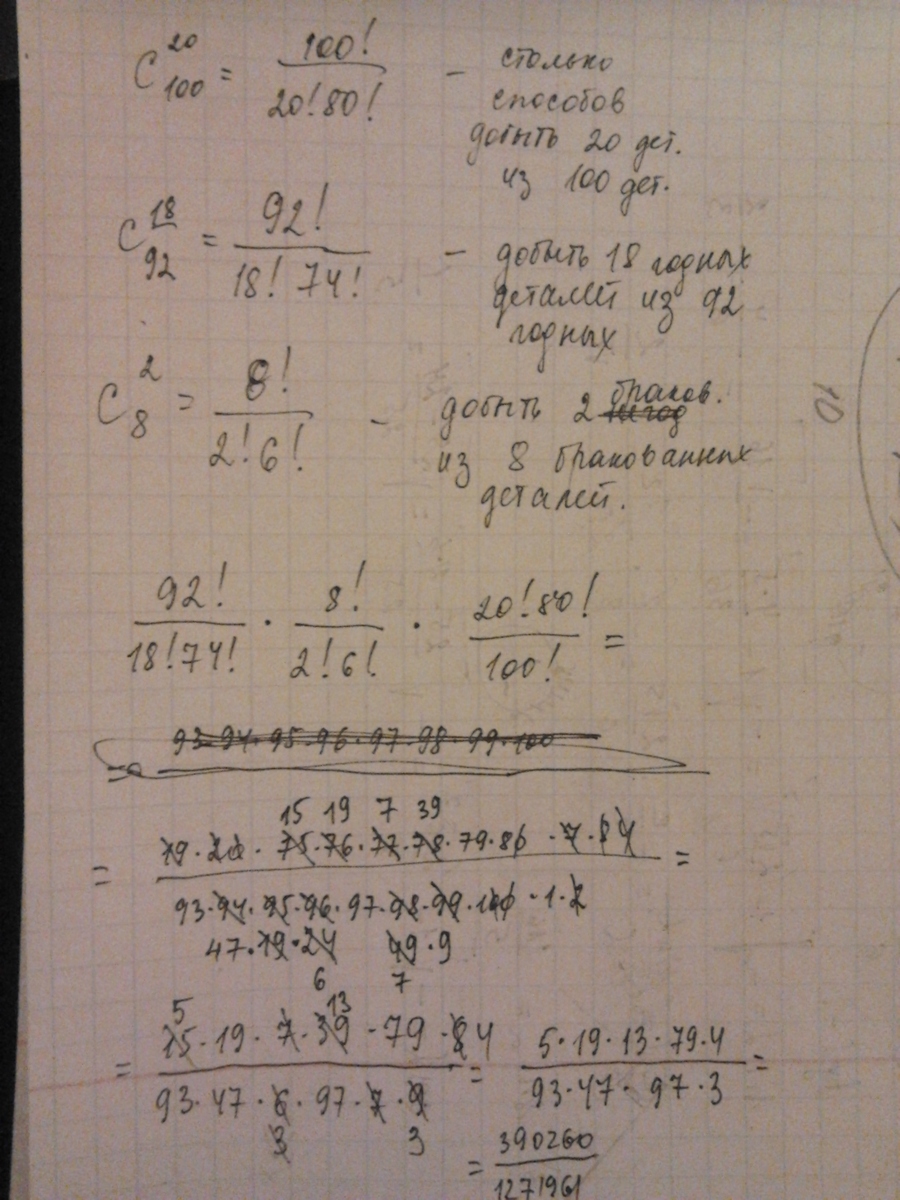 C₁₀₀²⁰ = 100! / 20! 80! — столько
способов
добыть 20 дет.
из 100 дет.
C₉₂¹⁸ = 92! / 18! 74! — добыть 18 годных
деталей из 92
годных
C₈² = 8! / 2! 6! — добыть 2 браков.
из 8 бракованных
деталей.
92! / 18! 74! · 8! / 2! 6! · 20! 80! / 100! =
= 93·94·95·96·97·98·99·100
15 19 7 39
= 19·20·75·76·77·78·79·80·7·8 4 / 93·94·95·96·97·98·99·100·1·2 =
47·19·24 49·9
6 7
5 13
= 15·19·7·39·79·8 4 / 93·47·6·97·7·9 = 5·19·13·79·4 / 93·47·97·3 =
3 3
= 390260 / 1271961
10